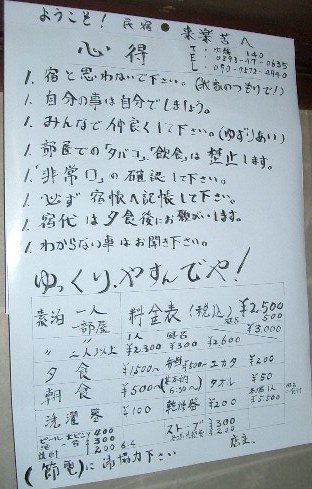 ようこそ! 民宿 ● 来楽苦へ
心得
1. 宿と思わないで下さい。(我家のつもりで!)
1. 自分の事は自分でしましょう。
1. みんなで仲良くして下さい。(ゆずりあい)
1. 部屋での「タバコ」「飲食」は禁止します。
1. 「非常口」の確認して下さい。
1. 必ず宿帳へ記帳して下さい。
1. 宿代は夕食後にお願いします。
1. わからない事はお聞き下さい。
ゆっくり、やすんでや!
素泊 一人 料金表(税込) ¥2,500
一部屋 500
¥3,000
〃 二人以上 1人 ¥2,300 ¥300 ¥2,600
夕食 ¥1500〜 弁当 ¥500〜 ユカタ ¥200
朝食 ¥500〜 タオル ¥50
洗濯器 ¥100 乾燥器 ¥200 ¥5,500
ビール 大ビン 400
¥300 ストーブ ¥300
200 ¥200
店主
(節電)に御協力下さい